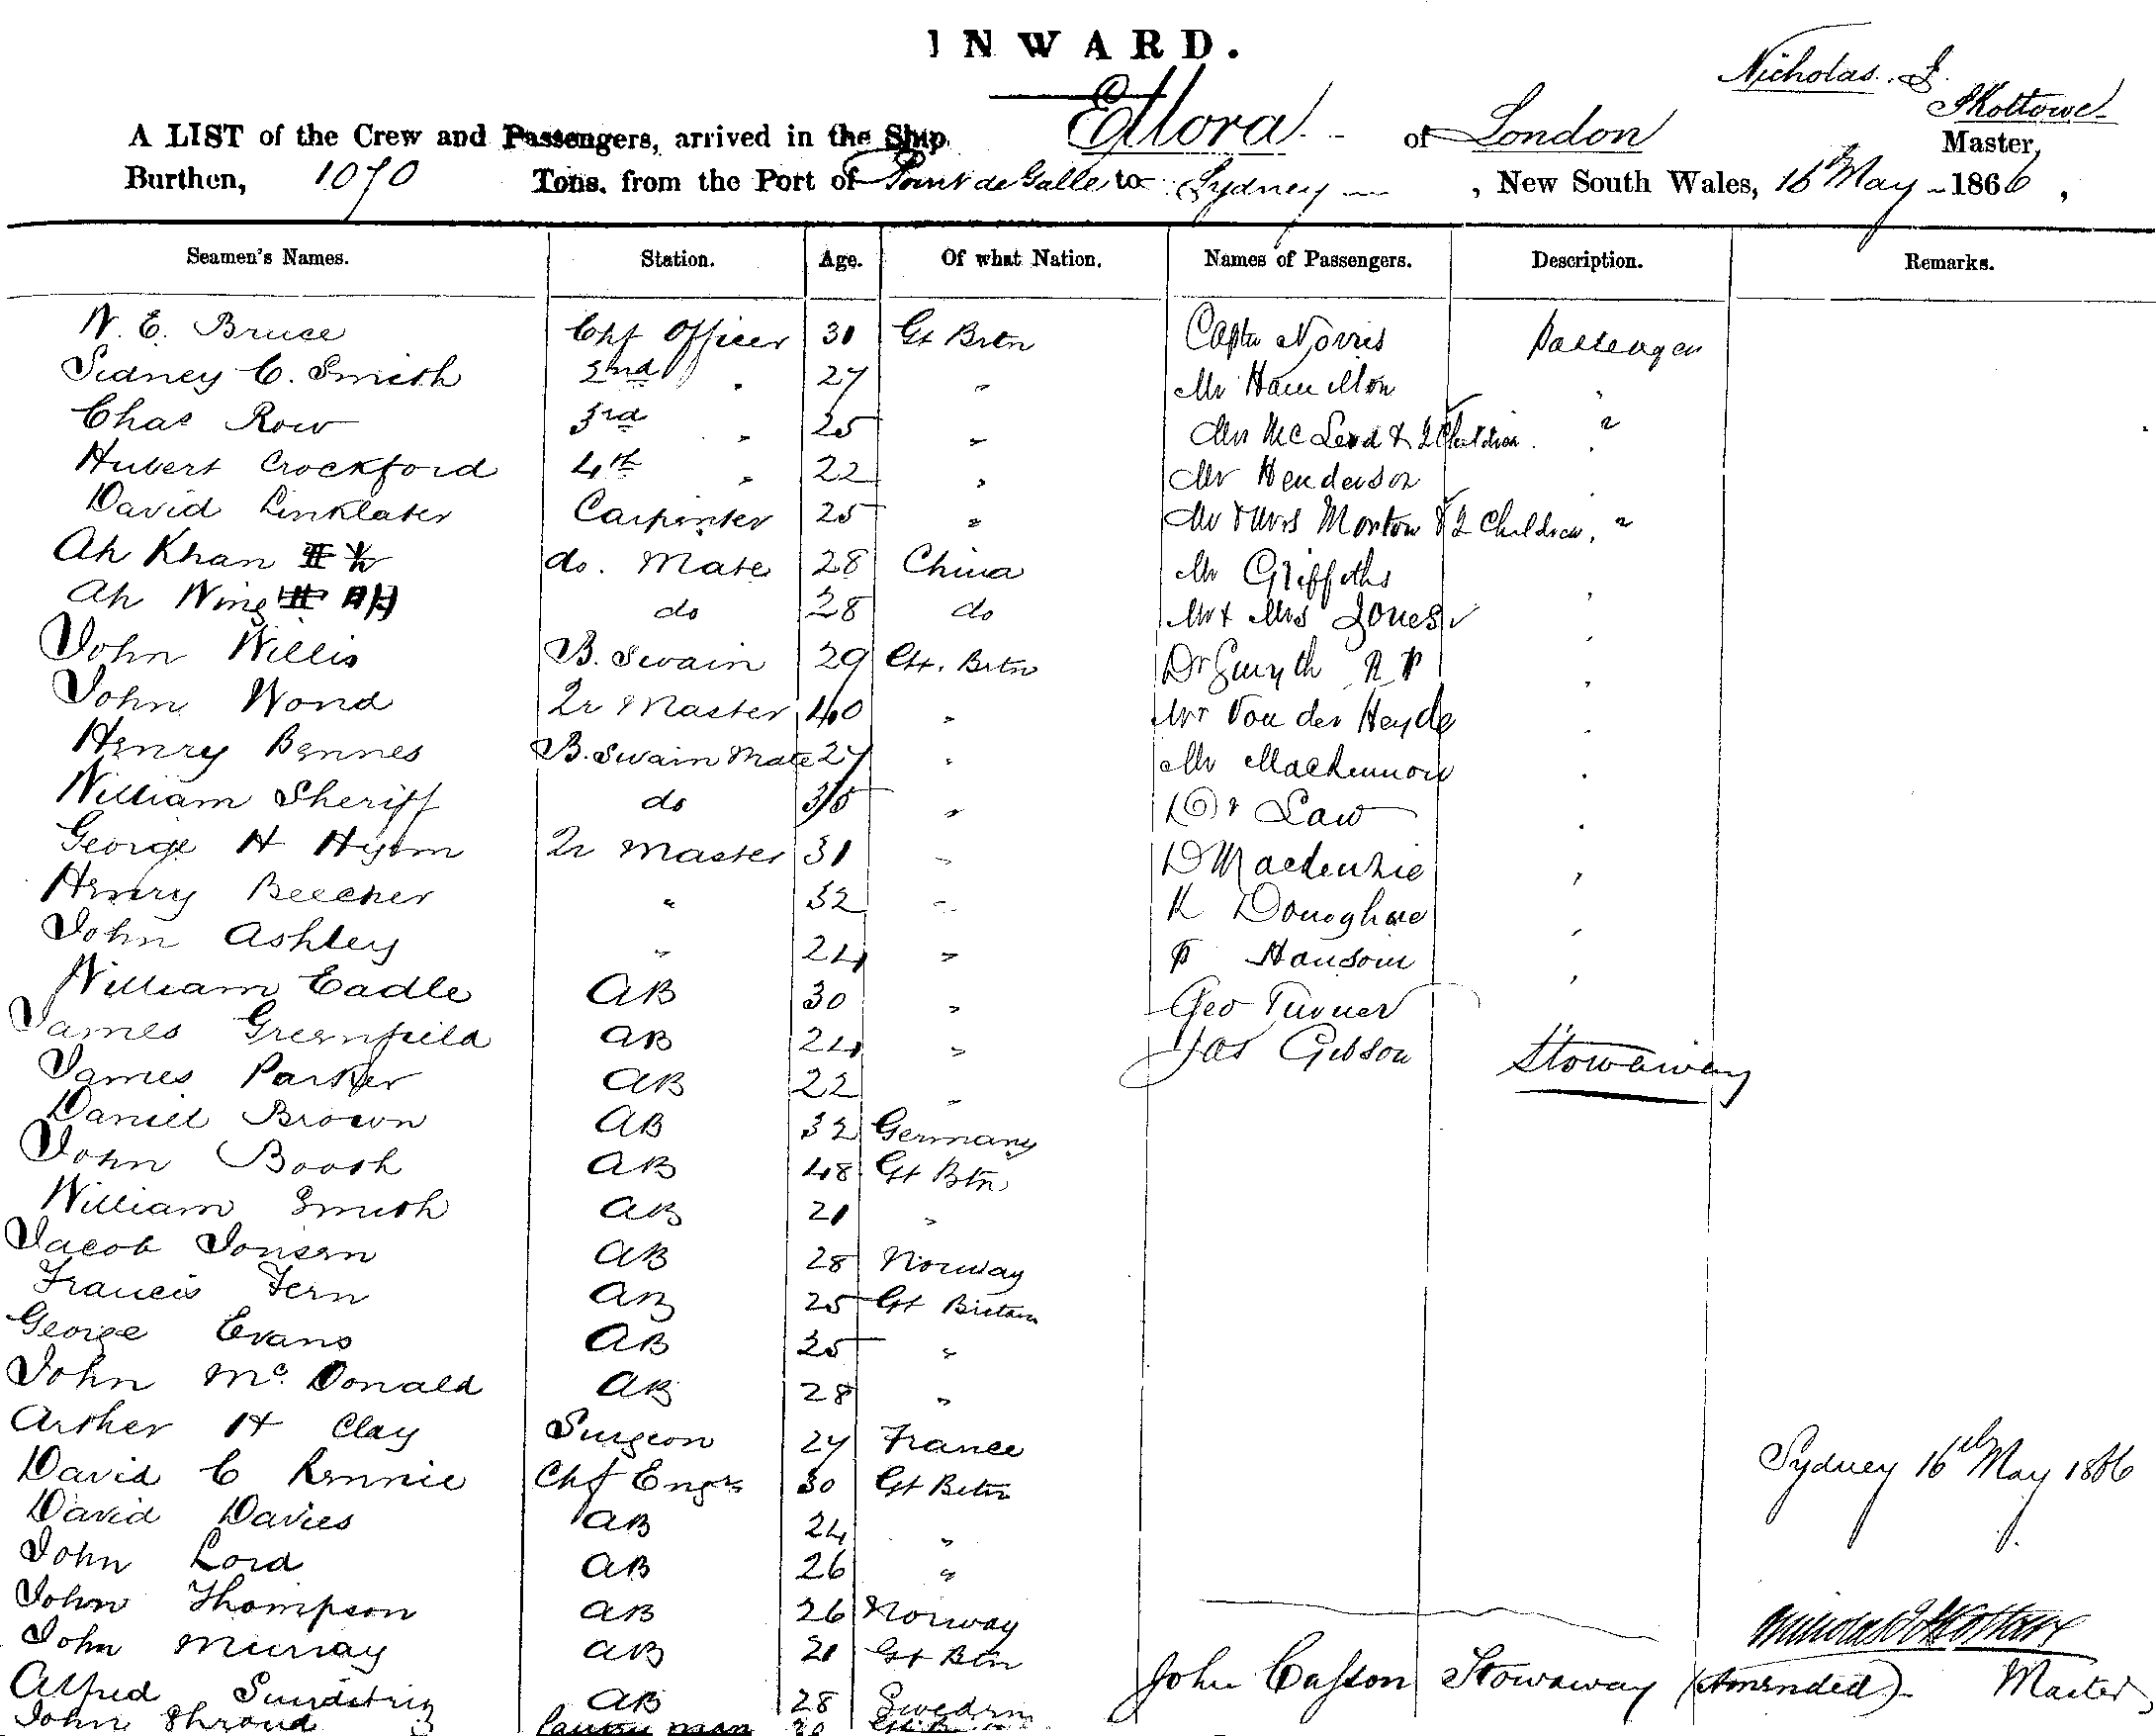 INWARD.
Nicholas. J.
Skottowe
A LIST of the Crew and Passengers, arrived in the Ship Ellora of London Master,
Burthen, 1070 Tons. from the Port of Point de Galle to Sydney , New South Wales, 16th May 1866 ,
Seamen's Names. Station. Age. Of what Nation. Names of Passengers. Description. Remarks.
N. E. Bruce Chf Officer 30 Gt Brtn Captn Norris Passenger
Sidney C. Smith 2nd " 27 " Mr Hamilton "
Chas Row 3rd " 25 " Mrs McLeod & 2 Children. "
Hubert Crockford 4th " 22 " Mr Henderson "
David Linklater Carpenter 25 " Mr & Mrs Morton & 2 Children, "
Ah Khan do. Mate 28 China Mr Griffiths "
Ah Wing do 28 do Mr & Mrs Jones "
John Willis B. Swain 29 Gt. Brtn Dr Smyth R N "
John Wond Qr Master 40 " Mr Von der Heyde "
Henry Bennes B. Swain Mate 27 " Mr Mackinnon "
William Sheriff do 35 " Dr Law "
George H Hyom Qr Master 31 " D Mackenzie "
Henry Beecher " 32 " K Donoghue "
John Ashley " 24 " P Hansom "
William Eadle AB 30 " Geo Turner
James Greenfield AB 24 " Jas Gibson Stowaway
James Parker AB 22 "
Daniel Brown AB 32 Germany
John Booth AB 48 Gt Btn
William Smith AB 21 "
Jacob Jonsen AB 28 Norway
Francis Fern AB 25 Gt Britain
George Evans AB 25 "
John Mc. Donald AB 28 "
Arther H Clay Surgeon 27 France
David C Rennie Chf Engr 30 Gt Brtn Sydney 16th May 1866
David Davies AB 24 "
John Lord AB 26 "
John Thompson AB 26 Norway
John Murray AB 21 Gt Btn Nicholas J Skottowe
Alfred AB 28 Sweden John Casson Stowaway (Amended) Master
John Shroud